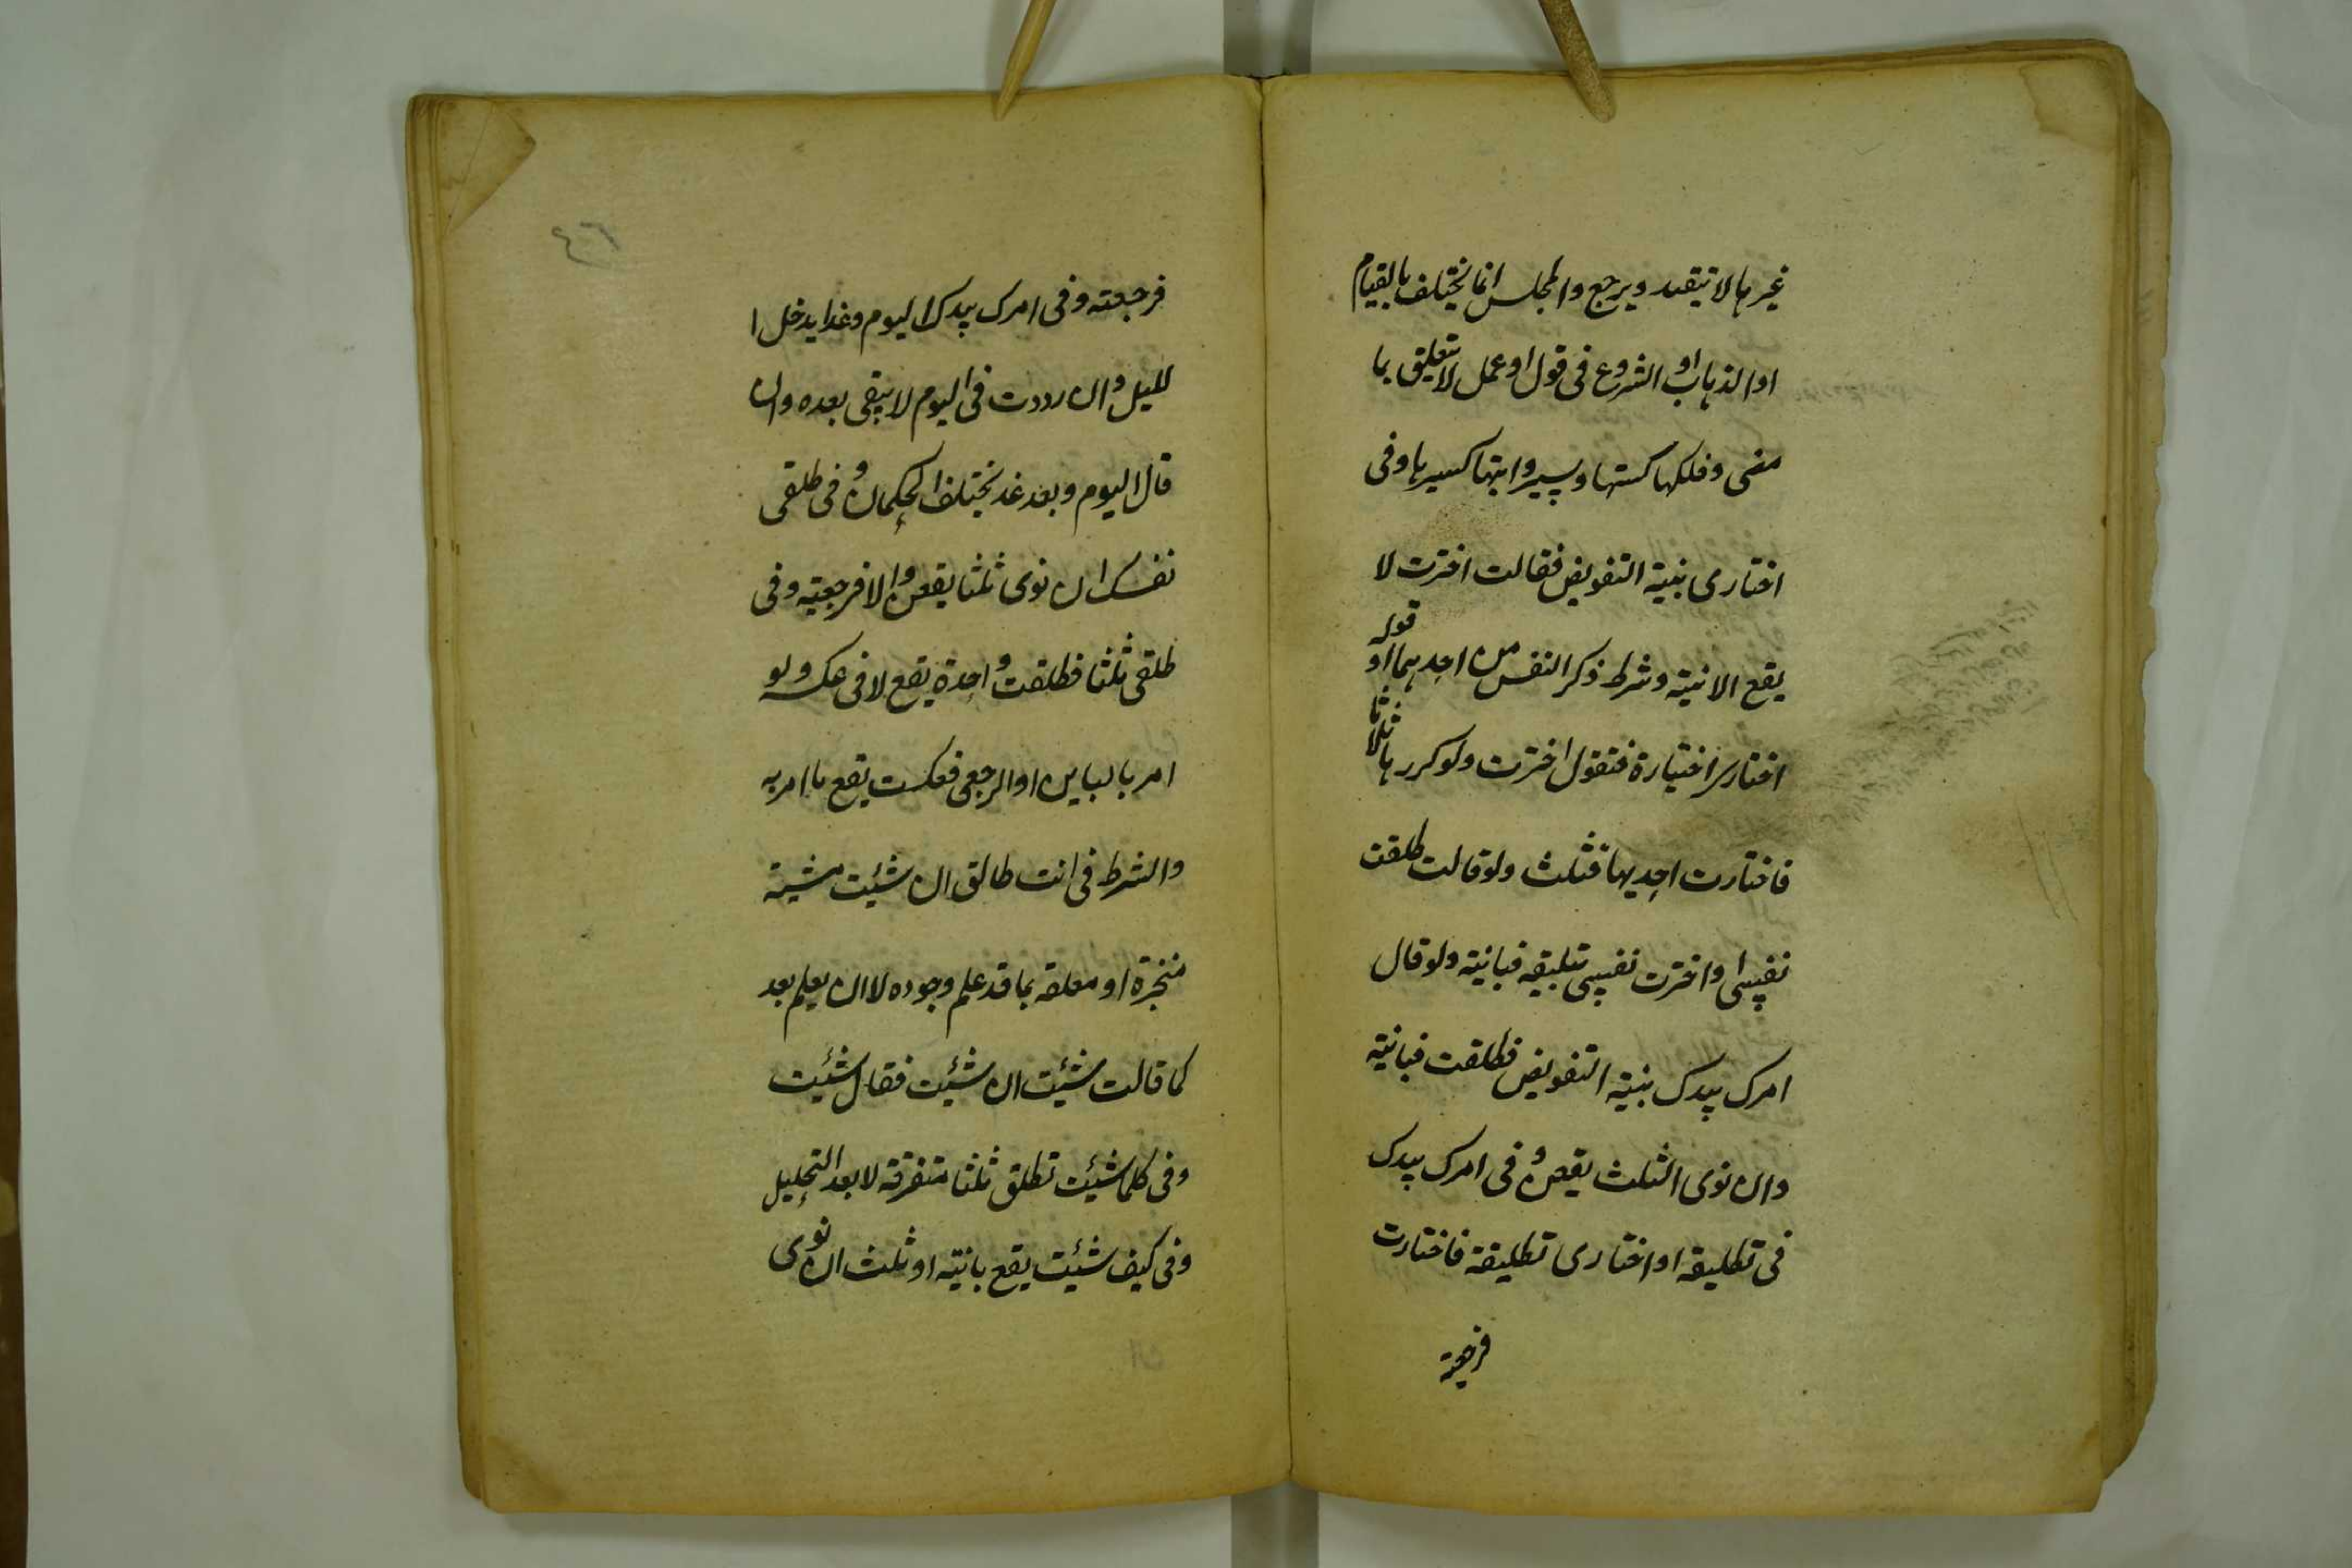 غيرها لا يتقيد ويرجع والمجلس انما يختلف بالقيام
او الذهاب او الشروع فى قول او عمل لا يتعلق بما
مضى وفلكها كبيتها وسير دابتها كسيرها وفى
اختارى بنية التفويض فقالت اخترت لا
يقع الا بنية وشرط ذكر النفس من احدهما او قوله
اختارى اختيارة فتقول اخترت ولو كررها ثلاثا
فاختارت احديها فثلث ولو قالت طلقت
نفسى او اخترت نفسى بتطليقة فبانية ولو قال
امرك بيدك بنية التفويض فطلقت فبانية
وان نوى الثلث يقعن وفى امرك بيدك
فى تطليقة او اختارى تطليقة فاختارت
فرجعية
٤٦
فرجعته وفى امرك بيدك اليوم وغدا يدخل ا
لليل وان رددت فى اليوم لا يبقى بعده وان
قال اليوم وبعد غد يختلف الحكمان وفى طلقى
نفسك ان نوى ثلثا يقعن والا فرجعية وفى
طلقى ثلثا فطلقت واحدة يقع لا فى عكسه ولو
امر بالباين او الرجعى فعكست يقع ما امر به
والشرط فى انت طالق ان شئت مشية
منجزة او معلقة بما قد علم وجوده لا ان يعلم بعد
كما قالت شئت ان شئت فقال شئت
وفى كلما شئت تطلق ثلثا متفرقة لا بعد التحليل
وفى كيف شئت يقع بانية او ثلث ان نوى